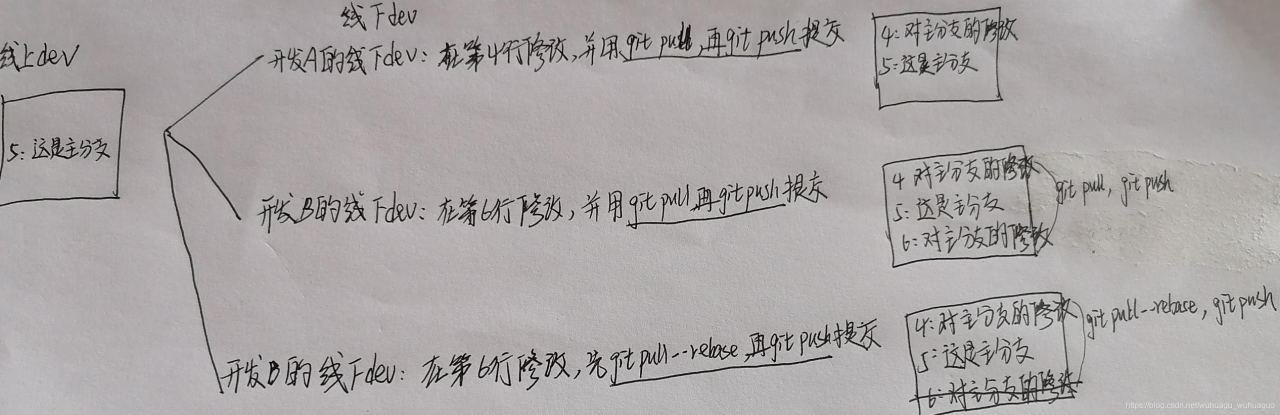 线下dev
线上dev
5：这是主分支
开发A的线下dev：在第4行修改，并用git pull，再git push提交
4：对主分支的修改
5：这是主分支
开发B的线下dev：在第6行修改，并用git pull，再git push提交
4 对主分支的修改
5：这是主分支
6：对主分支的修改
git pull，git push
开发B的线下dev：在第6行修改，先git pull--rebase，再git push提交
4：对主分支的修改
5：这是主分支
6：对主分支的修改
git pull--rebase，git push
https://blog.csdn.net/wuhuagu_wuhuaguo